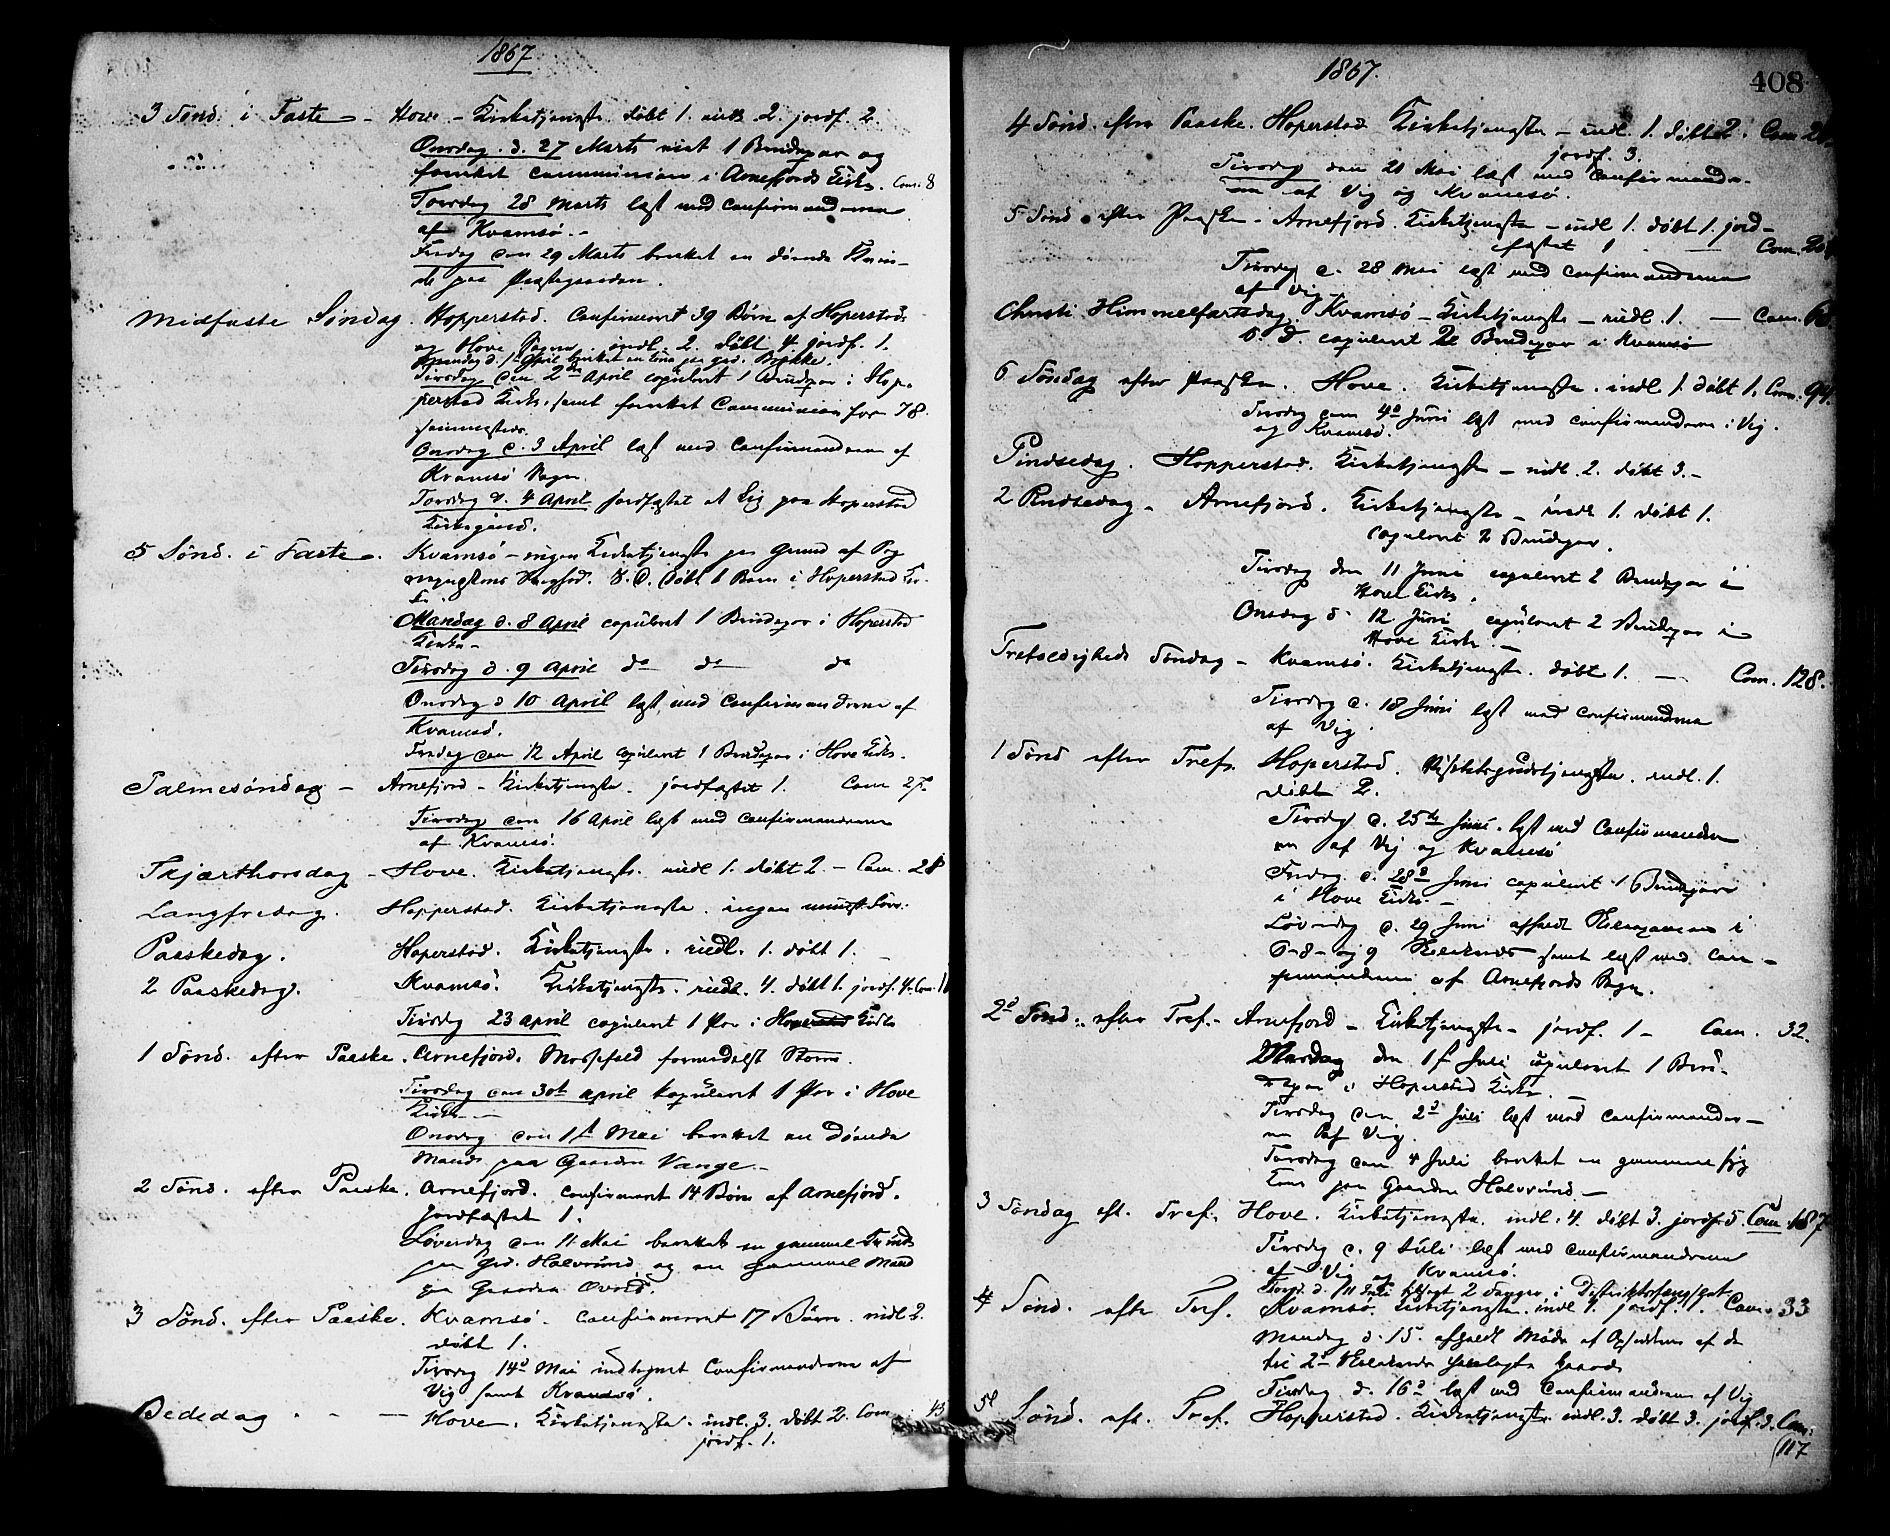 1867
3 Sönd. i Faste - Hove - Kirketjeneste. döbt 1. indl. 2. jordf. 2
Onsdag d. 27 Marts viet 1 Brudepar og
forrettet Communion i Arnefjords Kirke. Com. 8
Torsdag 28 Marts læst med Confirmanderne
af Kvamsö.
Fredag den 29 Marts berettet en döende Kvin-
de paa Præstegaarden.
Midfaste Söndag. Hopperstad. Confirmeret 39 Börn af Hoperstad
og Hove Sogne. indl. 2. döbt 4. jordf. 1.
Mandag d. 1 April berettet en Kone paa Grd. Brække.
Tirsdag den 2den April copuleret 1 Brudepar i Hop-
perstad Kirke, samt forrettet Communion for 78
sammesteds.
Onsdag d. 3 April læst med Confirmanderne af
Kvamsö Sogn.
Torsdag d. 4 April jordfæstet et Lig paa Hoperstad
Kirkegaard.
5 Sönd. i Faste. Kvamsö - ingen Kirketjeneste paa Grund af
D. D. döbt 1 Barn i Hoperstad Kir-
ke.
Mandag d. 8 April copuleret 1 Brudepar i Hoperstad
Kirke -
Tirsdag d. 9 April do do do
Onsdag d 10 April læst med Confirmanderne af
Kvamsö.
Fredag den 12 April copuleret 1 Brudepar i Hove Kirke.
Palmesöndag - Arnefjord - Kirketjeneste. jordfæstet 1. Com 27
Tirsdag den 16 April læst med Confirmanderne
af Kvamsö.
Skjærthorsdag - Hove. Kirketjeneste. indl 1. döbt 2. - Com. 28
Langfredag. Hopperstad. Kirketjeneste. ingen
Paaskedag. Hoperstad. Kirketjeneste. indl. 1. döbt 1.
2 Paaskedag. Kvamsö. Kirketjeneste. indl. 4. döbt 1. jordf. 4. Com.
Tirsdag 23 April copuleret 1 Par i Hoperstad Kirke
1 Sönd. efter Paaske. Arnefjord. Messefald formedelst Storm.
Tirsdag den 30t April kopuleret 1 Par i Hove
Kirke -
Onsdag den 1st Mai berettet en döende
Mand paa Gaarden Vange -
2 Sönd. efter Paaske. Arnefjord. Confirmeret 14 Börn af Arnefjord.
Jordfæstet 1.
Löverdag den 11 Mai berettet en gammel Kvinde
paa Grd. Halvrund og en gammel Mand
paa Gaarden
3 Sönd. efter Paaske. Kvamsö. Confirmeret 17 Börn. indl 2.
döbt 1.
Tirsdag 14d Mai indtegnet Confirmanderne af
Vig samt Kvamsö.
Bededag - - Hove. Kirketjeneste. indl. 3. döbt 2. Com. 43
jordf. 1.
1867.
408
4 Sönd. efter Paaske. Hoperstad Kirketjeneste - indl. 1. döbt 2. Com.
jordf. 3.
Tirsdag den 21 Mai læst med Confirmander-
ne af Vig og Kvamsö.
5 Sönd. efter Paaske - Arnefjord. Kirketjeneste - indl 1. döbt 1. jord-
fæstet 1 - Com.
Tirsdag d. 28 Mai læst med Confirmanderne
af Vig
Christi Himmelfartsdag. Kvamsö - Kirketjeneste - indl. 1. - Com.
S. D. copuleret 2 Brudepar i Kvamsö
6 Söndag efter Paaske. Hove. Kirketjeneste. indl 1. döbt 1. Com. 94.
Tirsdag den 4d Juni læst med Confirmanderne i Vig.
og Kvamsö.
Pindsedag. Hopperstad. Kirketjeneste - indl. 2. döbt 3. -
2 Pindsedag - Arnefjord. Kirketjeneste - indl 1. döbt 1.
Copuleret 2 Brudepar.
Tirsdag den 11 Juni copuleret 2 Brudepar i
Hove Kirke.
Onsdag d. 12 Juni copuleret 2 Brudepar i
Hove Kirke. -
Trefoldigheds Söndag - Kvamsö. Kirketjeneste. döbt 1. - Com. 128.
Tirsdag d. 18 Juni læst med Confirmanderne
af Vig.
1 Sönd efter Tref. Hoperstad. Visitatsgudstjeneste. indl. 1.
döbt 2.
Tirsdag d. 25de Juni. læst med Confirmander-
ne af Vig og Kvamsö
Fredag d. 28d Juni copuleret 1 Brudepar
i Hove Kirke. -
Löverdag d. 29 Juni afholdt i
samt læst med Con-
firmanderne af Arnefjords Sogn.
2d Sönd. efter Tref. - Arnefjord - Kirketjeneste - jordf. 1 - Com. 32.
Mandag den 1st Juli copuleret 1 Bru-
depar i Hoperstad Kirke. -
Tirsdag den 2d Juli læst med Confirmander-
ne af Vig.
Torsdag den 4 Juli berettet en gammel syg
Kone paa Gaarden Halvrund. -
3 Söndag eft. Tref. Hove. Kirketjeneste. indl. 4. döbt 3. jordf. 5. Com. 187
Tirsdag d. 9 Juli læst med Confirmanderne
af Vig og Kvamsö.
Torsd. d. 11 Juli besögt 2 Fanger i Distriktsfængslet
4 Sönd. efter Tref. Kvamsö. Kirketjeneste. indl 1. jordf. 1. Com. 33
Mandag d. 15. afholdt Möde
Tirsdag d. 16d læst med Confirmanderne af Vig
5t Sönd. eft. Tref. Hopperstad. Kirketjeneste. indl. 3. döbt 3. jordf. 3. Com.
117